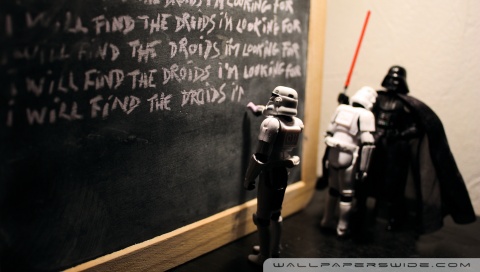 THE DROIDS I'M LOOKING FOR
I WILL FIND THE DROIDS I'M LOOKING FOR
I WILL FIND THE DROIDS I'M LOOKING FOR
I WILL FIND THE DROIDS I'M LOOKING FOR
I WILL FIND THE DROIDS I'M
WALLPAPERSWIDE.COM